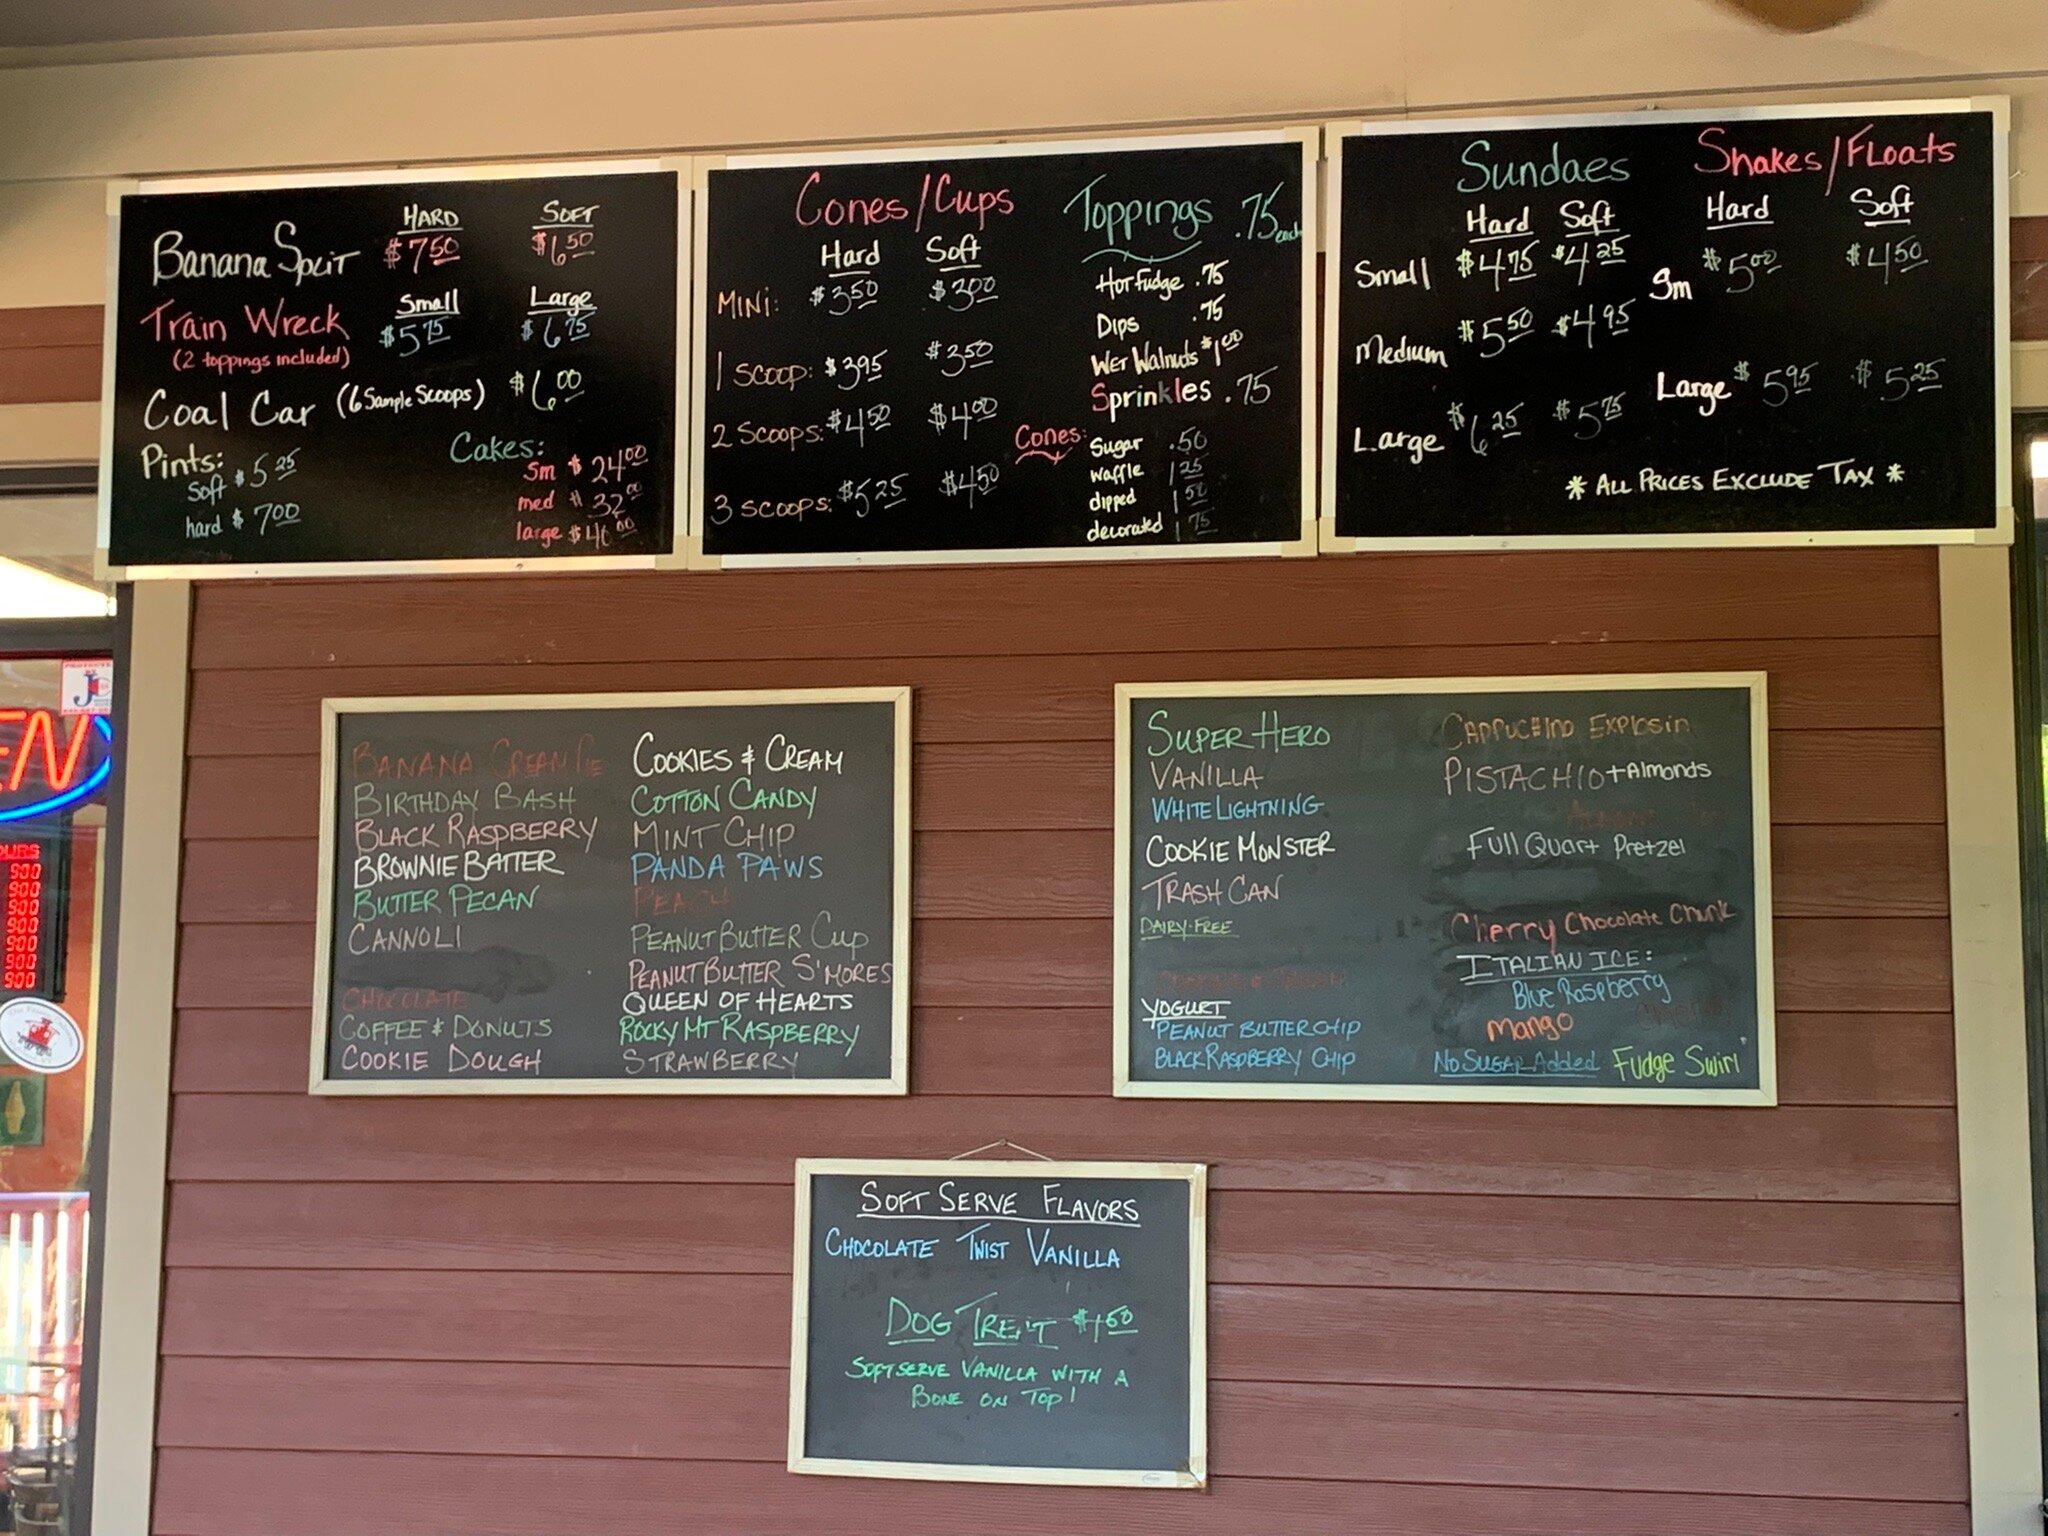 HARD SOFT
Banana Split $7.50 $6.50
Small Large
Train Wreck $5.75 $6.75
(2 toppings included)
Coal Car (6 Sample Scoops) $6.00
Pints:
Soft $5.25
hard $7.00
Cakes:
Sm $24.00
med $32.00
large $40.00
Cones/Cups
Hard Soft
MINI: $3.50 $3.00
1 SCOOP: $3.95 $3.50
2 SCOOPS: $4.50 $4.00
3 SCOOPS: $5.25 $4.50
Toppings .75 each
Hot Fudge .75
Dips .75
Wet Walnuts $1.00
Sprinkles .75
Cones:
Sugar .50
waffle 1.25
dipped 1.50
decorated 1.75
Sundaes
Hard Soft
Small $4.75 $4.25
Medium $5.50 $4.95
Large $6.25 $5.75
Shakes/Floats
Hard Soft
Sm $5.00 $4.50
Large $5.95 $5.25
* ALL PRICES EXCLUDE TAX *
BANANA CREAM PIE
BIRTHDAY BASH
BLACK RASPBERRY
BROWNIE BATTER
BUTTER PECAN
CANNOLI
CHOCOLATE
COFFEE & DONUTS
COOKIE DOUGH
COOKIES & CREAM
COTTON CANDY
MINT CHIP
PANDA PAWS
PEACH
PEANUT BUTTER Cup
PEANUT BUTTER S'MORES
QUEEN OF HEARTS
ROCKY MT RASPBERRY
STRAWBERRY
SUPER HERO
VANILLA
WHITE LIGHTNING
COOKIE MONSTER
TRASH CAN
DAIRY-FREE
YOGURT
PEANUT BUTTER CHIP
BLACK RASPBERRY CHIP
CAPPUCHINO EXPLOSIN
PISTACHIO + Almonds
Full Quart Pretzel
Cherry Chocolate Chunk
ITALIAN ICE:
Blue Raspberry
Mango
No Sugar Added Fudge Swirl
SOFT SERVE FLAVORS
CHOCOLATE TWIST VANILLA
DOG TREAT $1.50
SOFT SERVE VANILLA WITH A
BONE ON TOP!
EN
URS
900
900
900
900
900
900
900